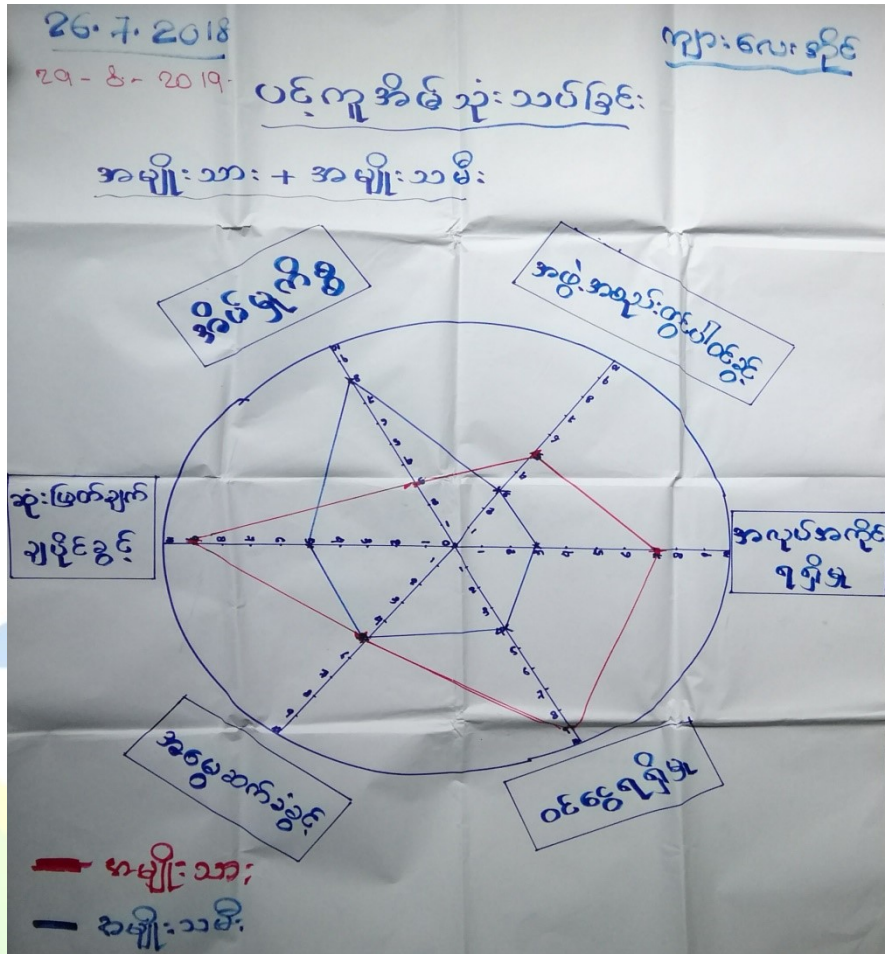 26.7.2018
29-8-2019
ကျားလေးတိုင်
ပင့်ကူအိမ်သုံးသပ်ခြင်း
အမျိုးသား + အမျိုးသမီး
အိမ်မှုကိစ္စ
အဖွဲ့အစည်းတွင်ပါဝင်ခွင့်
ဆုံးဖြတ်ချက်
ချပိုင်ခွင့်
အလုပ်အကိုင်
ရရှိမှု
အမွေဆက်ခံခွင့်
ဝင်ငွေရရှိမှု
အမျိုးသား
အမျိုးသမီး